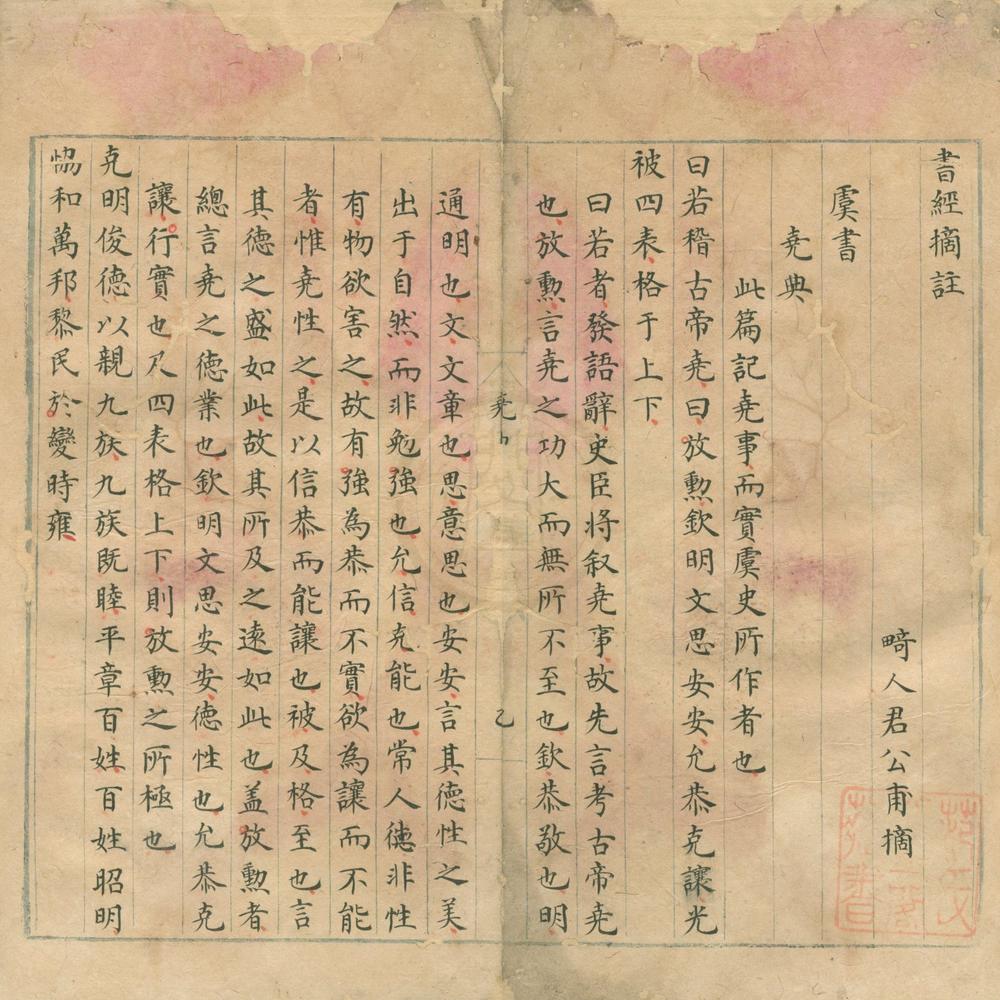 書經摘註
畸人君公甫摘
虞書
堯典
此篇記堯事而實虞史所作者也
曰若稽古帝堯曰放勲欽明文思安安允恭克讓光
被四表格于上下
曰若者發語辭史臣将叙堯事故先言考古帝堯
也放勲言堯之功大而無所不至也欽恭敬也明
堯
乙
通明也文文章也思意思也安安言其德性之美
出于自然而非勉強也允信克能也常人德非性
有物欲害之故有強為恭而不實欲為讓而不能
者惟堯性之是以信恭而能讓也被及格至也言
其德之盛如此故其所及之遠如此也盖放勲者
總言堯之德業也欽明文思安安德性也允恭克
讓行實也及四表格上下則放勲之所極也
克明俊德以親九族九族既睦平章百姓百姓昭明
恊和萬邦黎民於變時雍